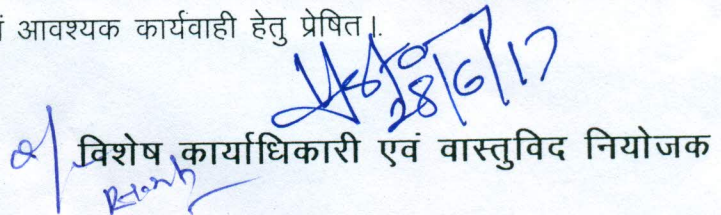 आवश्यक कार्यवाही हेतु प्रेषित।.
28/6/17
विशेष कार्याधिकारी एवं वास्तुविद नियोजक